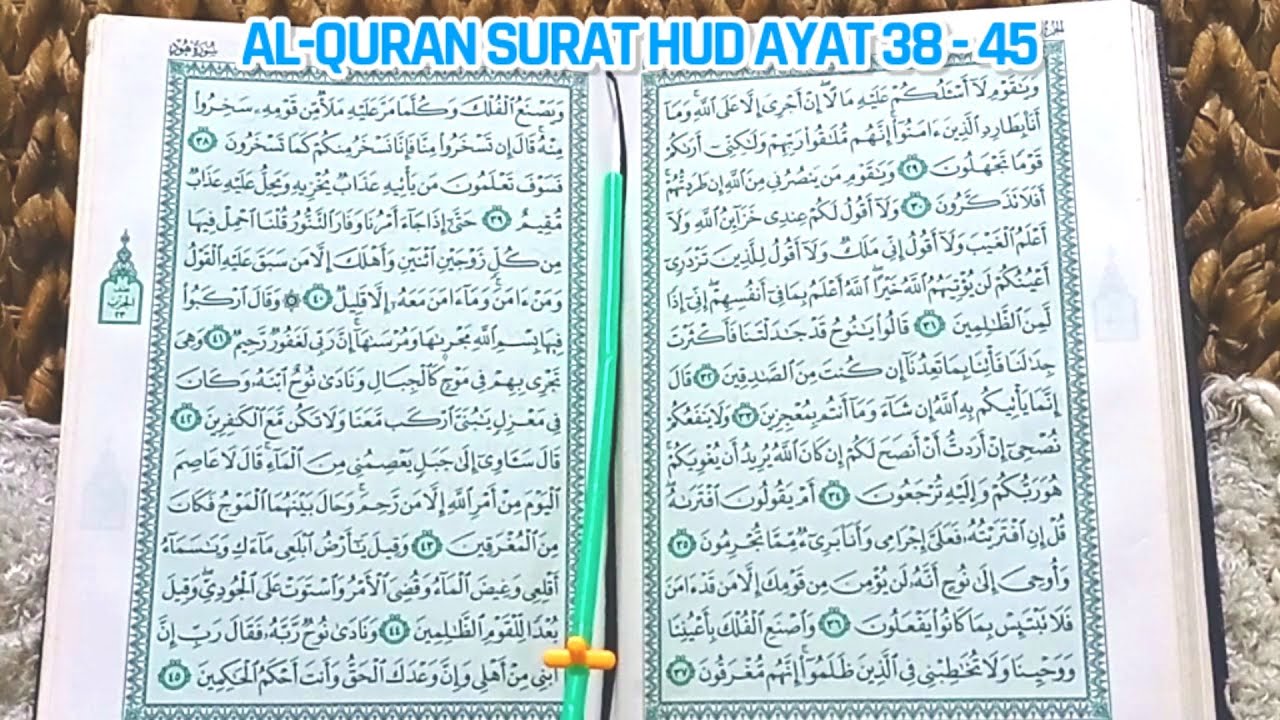 AL-QURAN SURAT HUD AYAT 38 - 45
سُورَةُ هُودٍ
وَيَٰقَوْمِ لَآ أَسْـَٔلُكُمْ عَلَيْهِ مَالًا ۖ إِنْ أَجْرِىَ إِلَّا عَلَى ٱللَّهِ ۚ وَمَآ
أَنَا۠ بِطَارِدِ ٱلَّذِينَ ءَامَنُوٓا۟ ۚ إِنَّهُم مُّلَٰقُوا۟ رَبِّهِمْ وَلَٰكِنِّىٓ أَرَىٰكُمْ
قَوْمًا تَجْهَلُونَ ٢٩ وَيَٰقَوْمِ مَن يَنصُرُنِى مِنَ ٱللَّهِ إِن طَرَدتُّهُمْ ۚ
أَفَلَا تَذَكَّرُونَ ٣٠ وَلَآ أَقُولُ لَكُمْ عِندِى خَزَآئِنُ ٱللَّهِ وَلَآ
أَعْلَمُ ٱلْغَيْبَ وَلَآ أَقُولُ إِنِّى مَلَكٌ وَلَآ أَقُولُ لِلَّذِينَ تَزْدَرِىٓ
أَعْيُنُكُمْ لَن يُؤْتِيَهُمُ ٱللَّهُ خَيْرًا ۖ ٱللَّهُ أَعْلَمُ بِمَا فِىٓ أَنفُسِهِمْ ۖ إِنِّىٓ إِذًا
لَّمِنَ ٱلظَّٰلِمِينَ ٣١ قَالُوا۟ يَٰنُوحُ قَدْ جَٰدَلْتَنَا فَأَكْثَرْتَ
جِدَٰلَنَا فَأْتِنَا بِمَا تَعِدُنَآ إِن كُنتَ مِنَ ٱلصَّٰدِقِينَ ٣٢ قَالَ
إِنَّمَا يَأْتِيكُم بِهِ ٱللَّهُ إِن شَآءَ وَمَآ أَنتُم بِمُعْجِزِينَ ٣٣ وَلَا يَنفَعُكُمْ
نُصْحِىٓ إِنْ أَرَدتُّ أَنْ أَنصَحَ لَكُمْ إِن كَانَ ٱللَّهُ يُرِيدُ أَن يُغْوِيَكُمْ ۚ
هُوَ رَبُّكُمْ وَإِلَيْهِ تُرْجَعُونَ ٣٤ أَمْ يَقُولُونَ ٱفْتَرَىٰهُ ۖ
قُلْ إِنِ ٱفْتَرَيْتُهُۥ فَعَلَىَّ إِجْرَامِى وَأَنَا۠ بَرِىٓءٌ مِّمَّا تُجْرِمُونَ ٣٥
وَأُوحِىَ إِلَىٰ نُوحٍ أَنَّهُۥ لَن يُؤْمِنَ مِن قَوْمِكَ إِلَّا مَن قَدْ ءَامَنَ
فَلَا تَبْتَئِسْ بِمَا كَانُوا۟ يَفْعَلُونَ ٣٦ وَٱصْنَعِ ٱلْفُلْكَ بِأَعْيُنِنَا
وَوَحْيِنَا وَلَا تُخَٰطِبْنِى فِى ٱلَّذِينَ ظَلَمُوٓا۟ ۚ إِنَّهُم مُّغْرَقُونَ ٣٧
وَيَصْنَعُ ٱلْفُلْكَ وَكُلَّمَا مَرَّ عَلَيْهِ مَلَأٌ مِّن قَوْمِهِۦ سَخِرُوا۟
مِنْهُ ۚ قَالَ إِن تَسْخَرُوا۟ مِنَّا فَإِنَّا نَسْخَرُ مِنكُمْ كَمَا تَسْخَرُونَ ٣٨
فَسَوْفَ تَعْلَمُونَ مَن يَأْتِيهِ عَذَابٌ يُخْزِيهِ وَيَحِلُّ عَلَيْهِ عَذَابٌ
مُّقِيمٌ ٣٩ حَتَّىٰٓ إِذَا جَآءَ أَمْرُنَا وَفَارَ ٱلتَّنُّورُ قُلْنَا ٱحْمِلْ فِيهَا
مِن كُلٍّ زَوْجَيْنِ ٱثْنَيْنِ وَأَهْلَكَ إِلَّا مَن سَبَقَ عَلَيْهِ ٱلْقَوْلُ
وَمَنْ ءَامَنَ ۚ وَمَآ ءَامَنَ مَعَهُۥٓ إِلَّا قَلِيلٌ ٤٠ ۞ وَقَالَ ٱرْكَبُوا۟
فِيهَا بِسْمِ ٱللَّهِ مَجْر۪ىٰهَا وَمُرْسَىٰهَآ ۚ إِنَّ رَبِّى لَغَفُورٌ رَّحِيمٌ ٤١ وَهِىَ
تَجْرِى بِهِمْ فِى مَوْجٍ كَٱلْجِبَالِ وَنَادَىٰ نُوحٌ ٱبْنَهُۥ وَكَانَ
فِى مَعْزِلٍ يَٰبُنَىَّ ٱرْكَب مَّعَنَا وَلَا تَكُن مَّعَ ٱلْكَٰفِرِينَ ٤٢
قَالَ سَـَٔاوِىٓ إِلَىٰ جَبَلٍ يَعْصِمُنِى مِنَ ٱلْمَآءِ ۚ قَالَ لَا عَاصِمَ
ٱلْيَوْمَ مِنْ أَمْرِ ٱللَّهِ إِلَّا مَن رَّحِمَ ۚ وَحَالَ بَيْنَهُمَا ٱلْمَوْجُ فَكَانَ
مِنَ ٱلْمُغْرَقِينَ ٤٣ وَقِيلَ يَٰٓأَرْضُ ٱبْلَعِى مَآءَكِ وَيَٰسَمَآءُ
أَقْلِعِى وَغِيضَ ٱلْمَآءُ وَقُضِىَ ٱلْأَمْرُ وَٱسْتَوَتْ عَلَى ٱلْجُودِىِّ ۖ وَقِيلَ
بُعْدًا لِّلْقَوْمِ ٱلظَّٰلِمِينَ ٤٤ وَنَادَىٰ نُوحٌ رَّبَّهُۥ فَقَالَ رَبِّ إِنَّ
ٱبْنِى مِنْ أَهْلِى وَإِنَّ وَعْدَكَ ٱلْحَقُّ وَأَنتَ أَحْكَمُ ٱلْحَٰكِمِينَ ٤٥